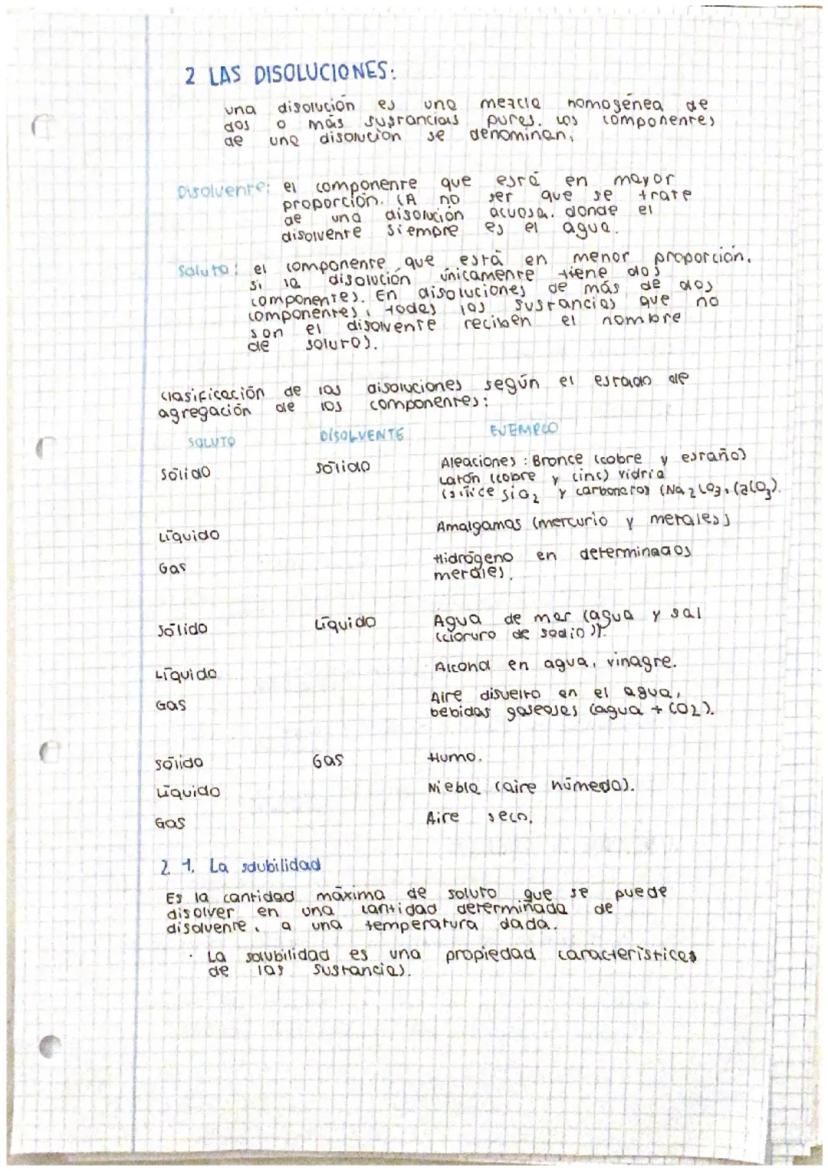 2 LAS DISOLUCIONES:
una disolución es una mezcla homogénea de
dos o más sustancias puras. Los componentes
de una disolución se denominan,
Disolvente: el componente que está en mayor
proporción. (A no ser que se trate
de una disolución acuosa. donde el
disolvente siempre es el agua.
Soluto: el componente que está en menor proporción.
si la disolución únicamente tiene dos
componentes. En disoluciones de más de dos
componentes, todas las sustancias que no
son el disolvente reciben el nombre
de soluto).
Clasificación de las disoluciones según el estado de
agregación de los componentes:
SOLUTO DISOLVENTE EJEMPLO
Sólido Sólido Aleaciones: Bronce (cobre y estaño)
Latón (cobre y cinc) vidria
(sílice SiO2 y carbonatos (Na2CO3, CaCO3).
Líquido Amalgamas (mercurio y metales)
Gas Hidrógeno en determinados
metales.
Sólido Líquido Agua de mar (agua y sal
(cloruro de sodio)).
Líquido Alcohol en agua, vinagre.
Gas Aire disuelto en el agua,
bebidas gaseosas (agua + CO2).
Sólido Gas Humo.
Líquido Niebla (aire húmedo).
Gas Aire seco.
2.1. La solubilidad
Es la cantidad máxima de soluto que se puede
disolver en una cantidad determinada de
disolvente, a una temperatura dada.
· La solubilidad es una propiedad característica
de las sustancias.